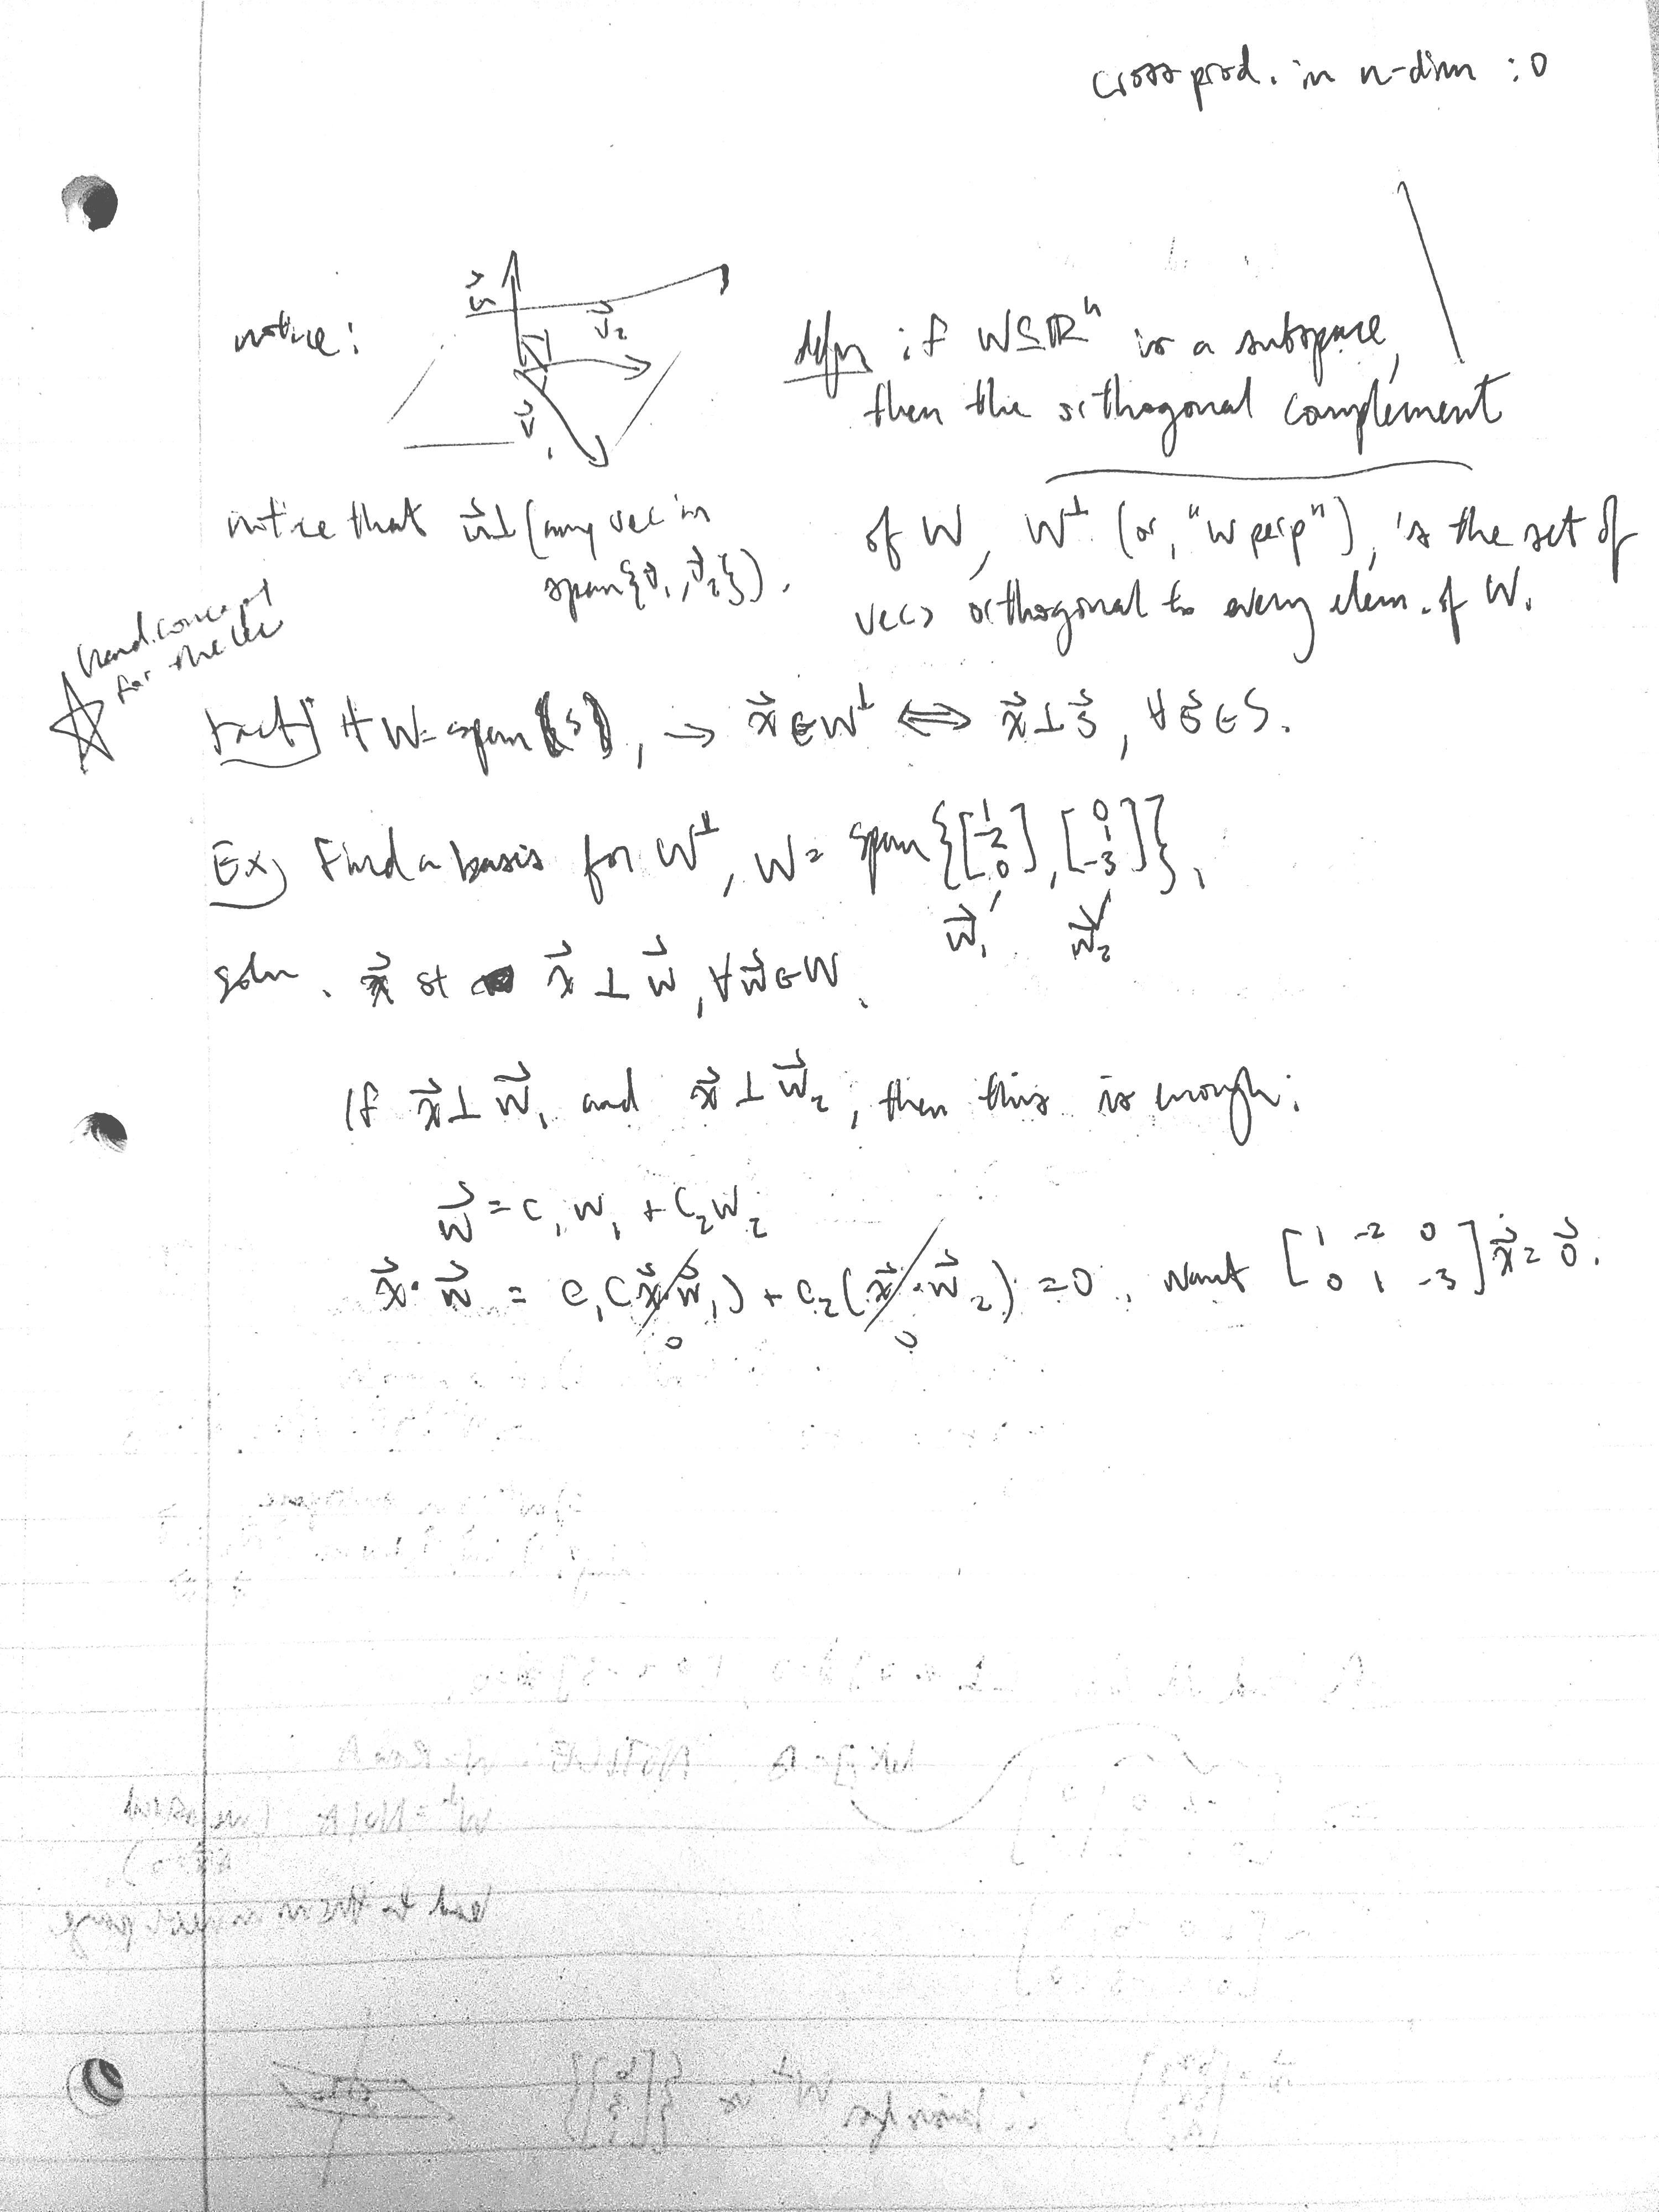 cross prod. in n-dim :0
notice:
n⃗
v⃗₂
v⃗₁
notice that n⃗⊥(any vec in
span{v⃗₁,v⃗₂}).
defn if W⊆ℝⁿ is a subspace,
then the orthogonal complement
of W, W^⊥ (or, "W perp"), is the set of
vecs orthogonal to every elem. of W.
concept
for
fact) if W=span(S), → x⃗∈W^⊥ ⟺ x⃗⊥s⃗, ∀s⃗∈S.
Ex) Find a basis for W^⊥, W = span{[1 -2 0], [0 1 -3]}.
w⃗₁ w⃗₂
soln. x⃗ st x⃗⊥w⃗, ∀w⃗∈W.
If x⃗⊥w⃗₁ and x⃗⊥w⃗₂, then this is enough:
w⃗ = c₁w₁ + c₂w₂
x⃗·w⃗ = c₁(x⃗·w⃗₁) + c₂(x⃗·w⃗₂) = 0. Want [1 -2 0 0 1 -3]x⃗=0⃗.
0 0